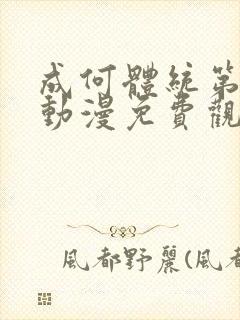 成何體統第
動漫免費觀
風都野麗(風都